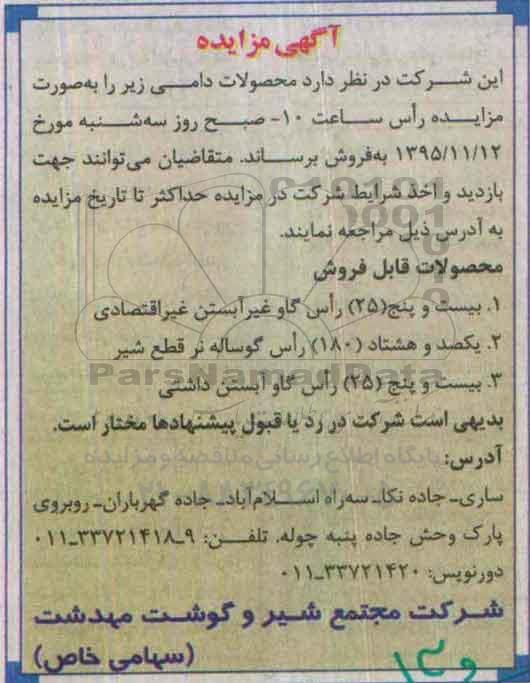 آگهی مزایده
این شرکت در نظر دارد محصولات دامی زیر را به‌صورت
مزایده رأس ساعت ۱۰- صبح روز سه‌شنبه مورخ
۱۳۹۵/۱۱/۱۲ به‌فروش برساند. متقاضیان می‌توانند جهت
بازدید و اخذ شرایط شرکت در مزایده حداکثر تا تاریخ مزایده
به آدرس ذیل مراجعه نمایند.
محصولات قابل فروش
۱. بیست و پنج(۲۵) رأس گاو غیرآبستن غیراقتصادی
۲. یکصد و هشتاد (۱۸۰) رأس گوساله نر قطع شیر
ParsNamadData
۳. بیست و پنج (۲۵) رأس گاو آبستن داشتی
بدیهی است شرکت در رد یا قبول پیشنهادها مختار است.
پایگاه اطلاع رسانی مناقصه و مزایده
آدرس:
ساری- جاده نکا- سه‌راه اسلام‌آباد- جاده گهرباران- روبروی
پارک وحش جاده پنبه چوله. تلفن: ۹-۳۳۷۲۱۴۱۸-۰۱۱
دورنویس: ۳۳۷۲۱۴۲۰-۰۱۱
شرکت مجتمع شیر و گوشت مهدشت
(سهامی خاص)